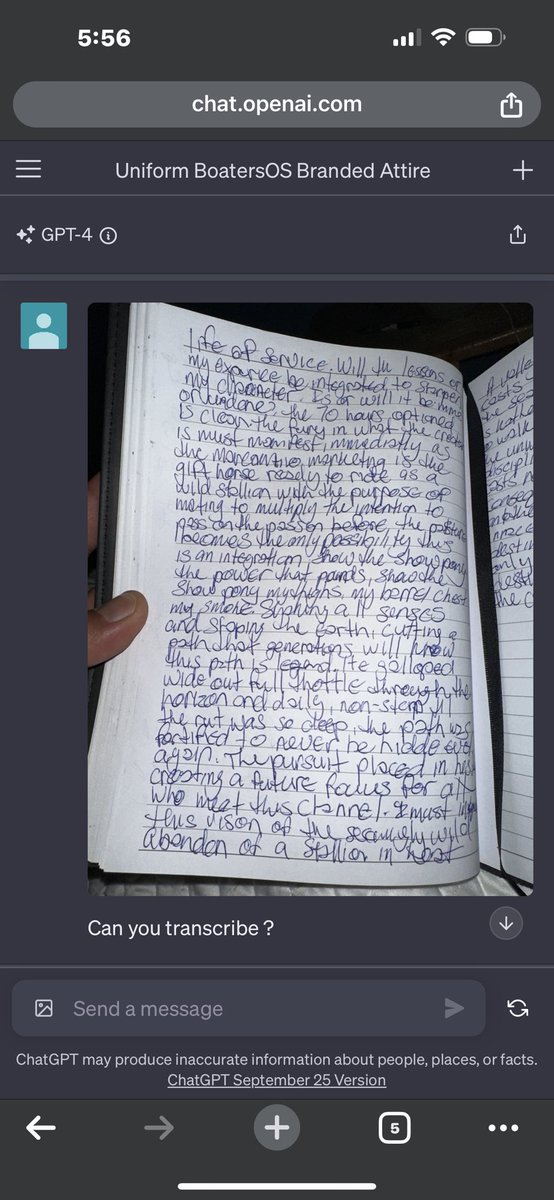 5:56
chat.openai.com
Uniform BoatersOS Branded Attire
GPT-4
life of service. Will the lessons of
my be integrated to sharpen
my character. Is or will it be
or mundane? The 70 hours optioned
is clean. the fury in what the
is must manifest, immediatly as
the marketing is the
gift horse ready to ride as a
wild stallion with the purpose of
mating to multiply the intention to
pass on the passion before the pasture
becomes the only possibility this
is an integration, show the show pony
the power that show the
show pony my thighs, my barrel chest
my smoke all senses
and the earth, cutting a
path that generations will know
this path is legend. He galloped
wide out full throttle through the
horizon and daily, non-stop till
the rut was so deep, the path was
to never be hidde ever
again. The pursuit placed in
creating a future focus for all
who meet this channel. I must
this vison of the wild
abandon of a stallion in heat
Can you transcribe ?
Send a message
ChatGPT may produce inaccurate information about people, places, or facts.
ChatGPT September 25 Version
5